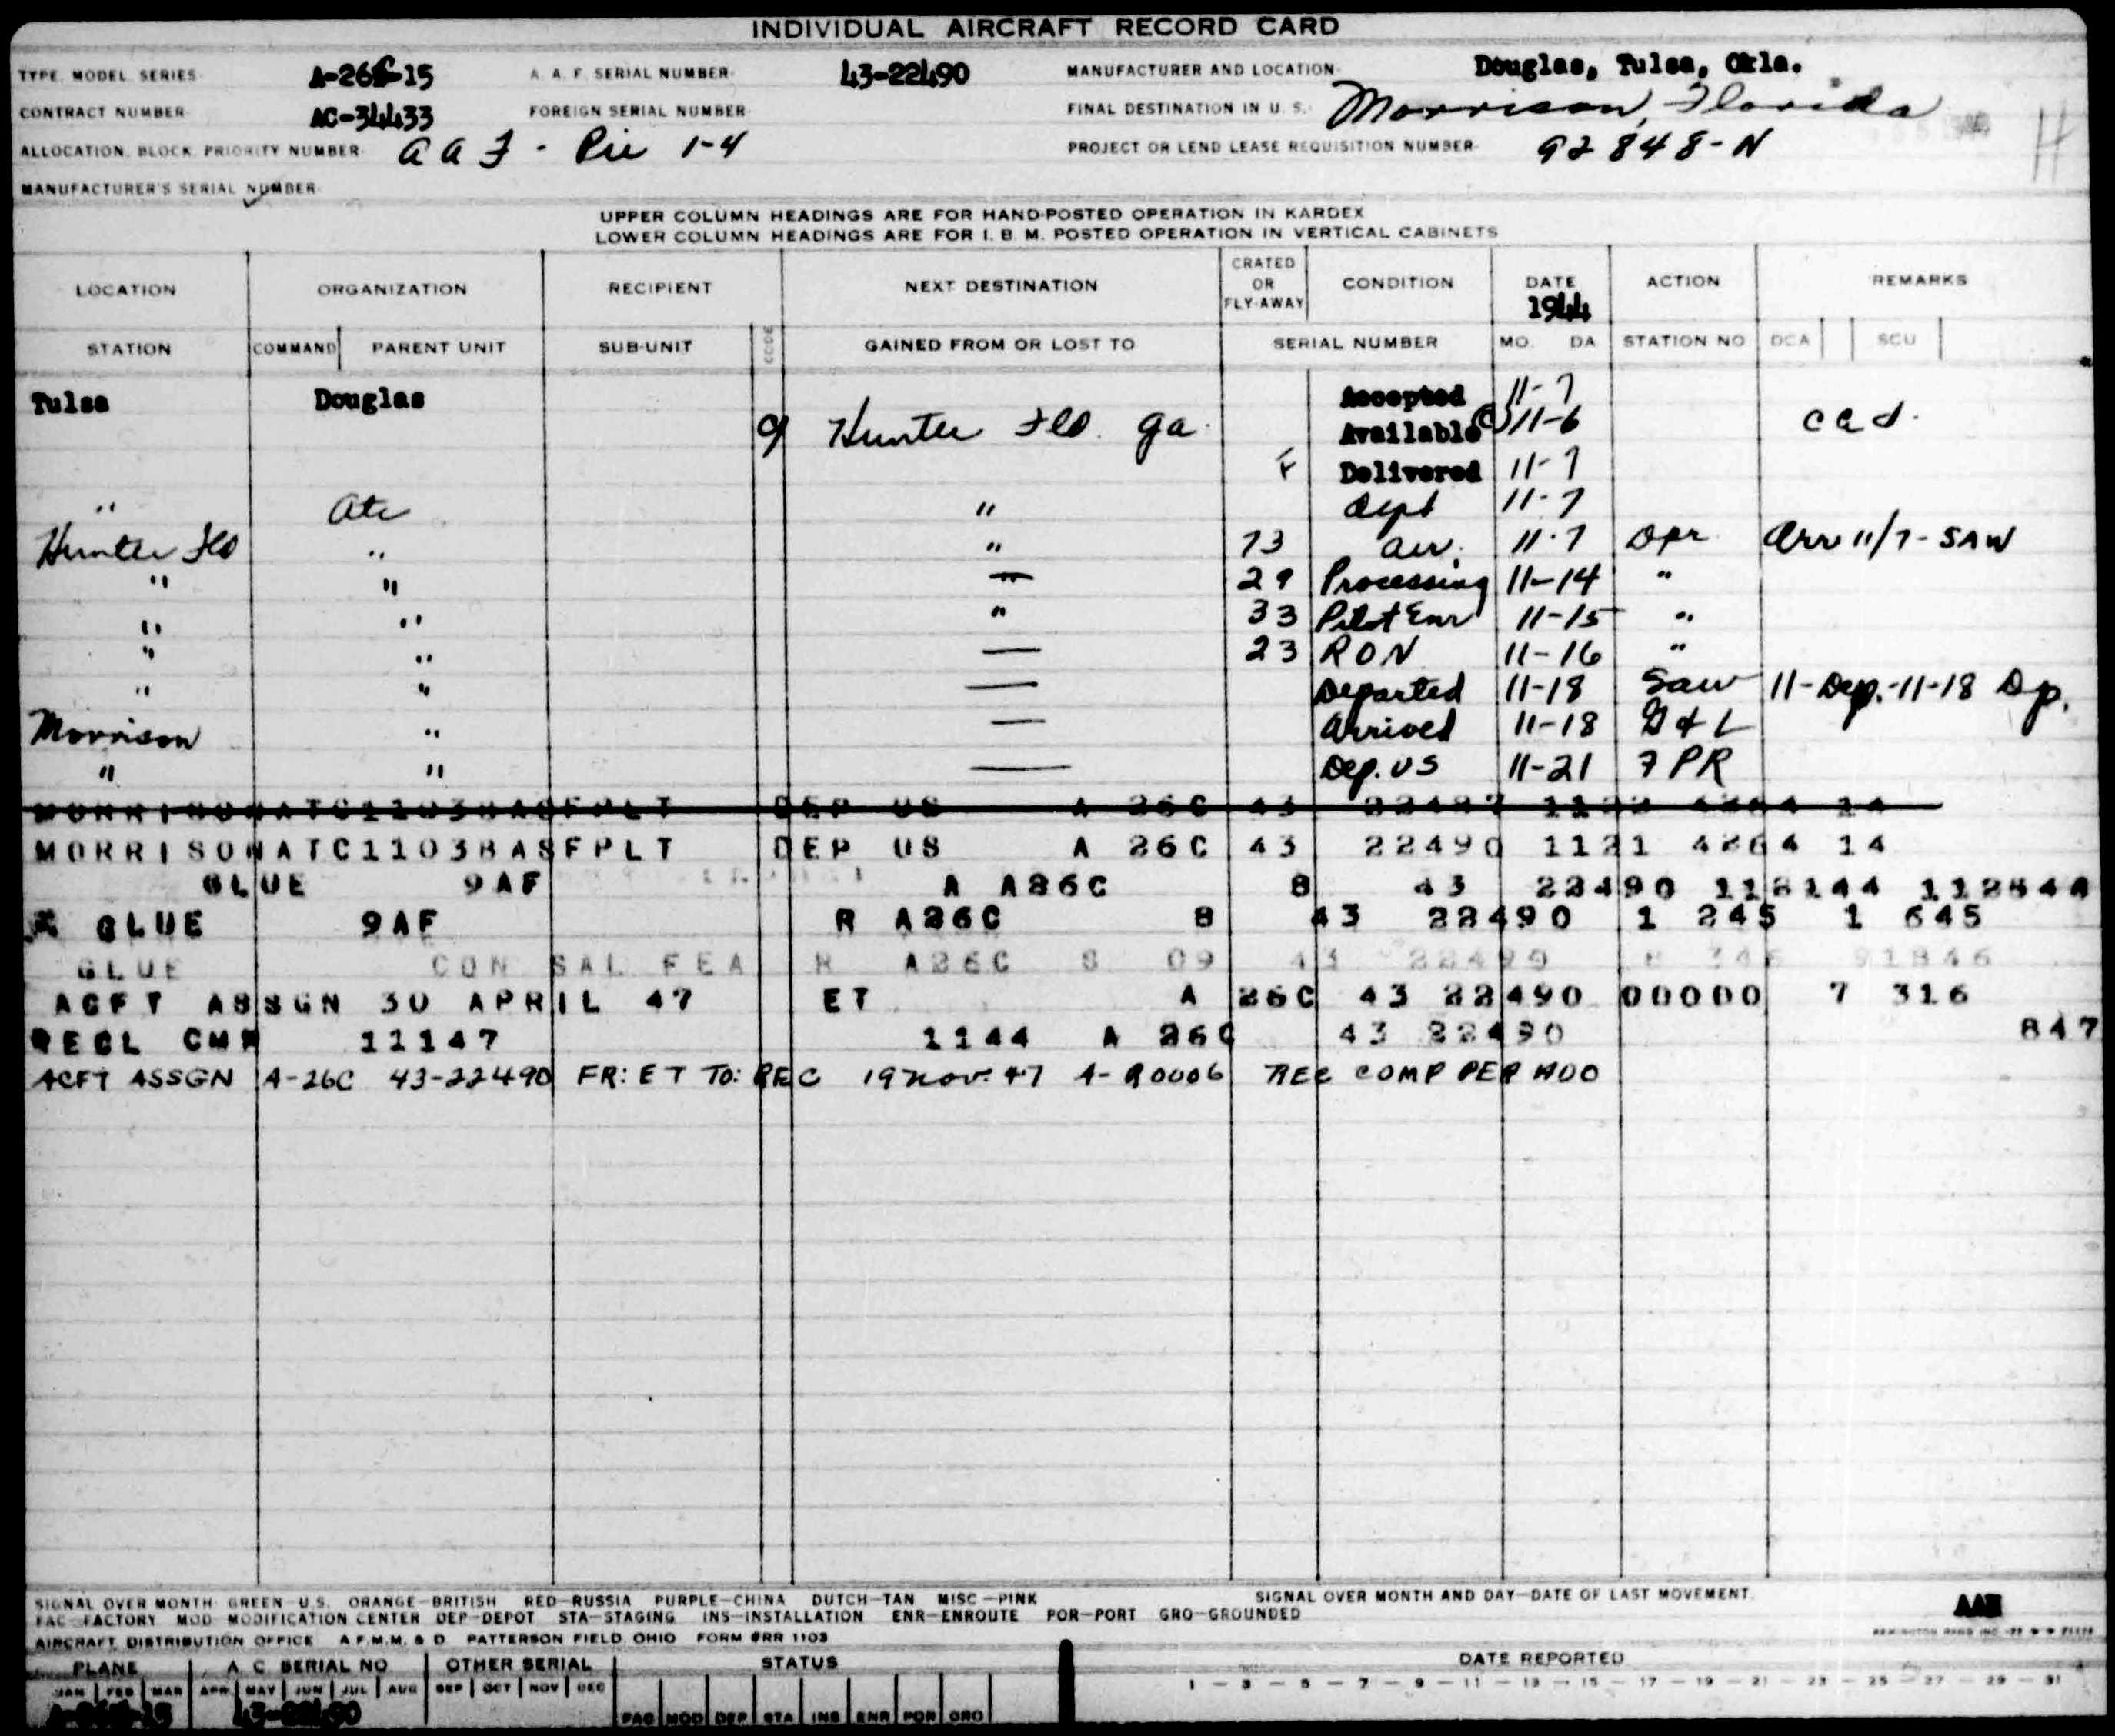 INDIVIDUAL AIRCRAFT RECORD CARD
TYPE, MODEL, SERIES A-26C-15 A. A. F. SERIAL NUMBER 43-22490 MANUFACTURER AND LOCATION Douglas, Tulsa, Okla.
CONTRACT NUMBER AC-34433 FOREIGN SERIAL NUMBER FINAL DESTINATION IN U. S. Morrison, Florida
ALLOCATION, BLOCK, PRIORITY NUMBER AAF - Pie 1-4 PROJECT OR LEND LEASE REQUISITION NUMBER 92848-N
MANUFACTURER'S SERIAL NUMBER
UPPER COLUMN HEADINGS ARE FOR HAND-POSTED OPERATION IN KARDEX
LOWER COLUMN HEADINGS ARE FOR I. B. M. POSTED OPERATION IN VERTICAL CABINETS
LOCATION ORGANIZATION RECIPIENT NEXT DESTINATION CRATED OR FLY-AWAY CONDITION DATE 1944 ACTION REMARKS
STATION COMMAND PARENT UNIT SUB-UNIT CODE GAINED FROM OR LOST TO SERIAL NUMBER MO. DA STATION NO DCA SCU
Tulsa Douglas Accepted 11-7
Hunter Fld. Ga. Available 11-6 cad.
F Delivered 11-7
" Atc " Dept 11-7
Hunter Fld " " 73 arr. 11-7 Opr Arr 11/7-SAW
" " " 29 Processing 11-14 "
" " " 33 Pilot Enr 11-15 "
" " — 23 RON 11-16 "
" " — Departed 11-18 Saw 11-Dep.-11-18 Dp.
Morrison " — Arrived 11-18 G & L
" " — Dep. US 11-21 7 PR
MORRISONATC1103BASFPLT DEP US A 26C 43 22487 1122 4264 14
MORRISONATC1103BASFPLT DEP US A 26C 43 22490 1121 4264 14
GLUE 9AF A A26C 8 43 22490
GLUE 9AF R A26C 8 43 22490 1 245 1 645
GLUE CON SAL FEA R A26C 8 09 43 22490 91846
ACFT ASSGN 30 APRIL 47 ET A 26C 43 22490 00000 7 316
RECL CMP 11147 1144 A 26C 43 22490 847
ACFT ASSGN A-26C 43-22490 FR: ET TO: REC 19 Nov. 47 A-R0006 REC COMP PER ADO
SIGNAL OVER MONTH GREEN-U.S. ORANGE-BRITISH RED-RUSSIA PURPLE-CHINA DUTCH-TAN MISC-PINK SIGNAL OVER MONTH AND DAY-DATE OF LAST MOVEMENT.
FAC-FACTORY MOD-MODIFICATION CENTER DEP-DEPOT STA-STAGING INS-INSTALLATION ENR-ENROUTE POR-PORT GRO-GROUNDED
AIRCRAFT DISTRIBUTION OFFICE A.F.M.M. & D. PATTERSON FIELD, OHIO FORM #RR 1103
PLANE A. C. SERIAL NO OTHER SERIAL STATUS DATE REPORTED
JAN FEB MAR APR MAY JUN JUL AUG SEP OCT NOV DEC 1 - 3 - 5 - 7 - 9 - 11 - 13 - 15 - 17 - 19 - 21 - 23 - 25 - 27 - 29 - 31
43-22490 FAC MOD DEP STA INS ENR POR GRO